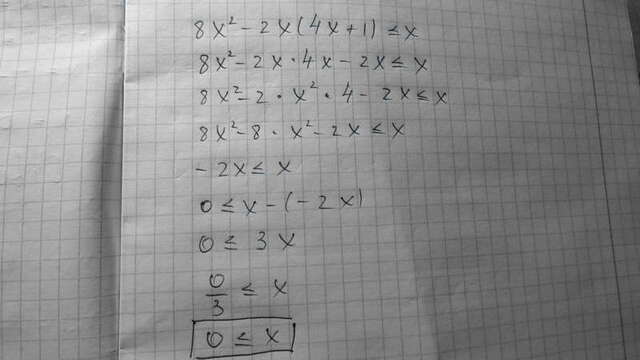 8x² - 2x(4x+1) ≤ x
8x² - 2x · 4x - 2x ≤ x
8x² - 2 · x² · 4 - 2x ≤ x
8x² - 8 · x² - 2x ≤ x
- 2x ≤ x
0 ≤ x - (- 2x)
0 ≤ 3x
0/3 ≤ x
0 ≤ x